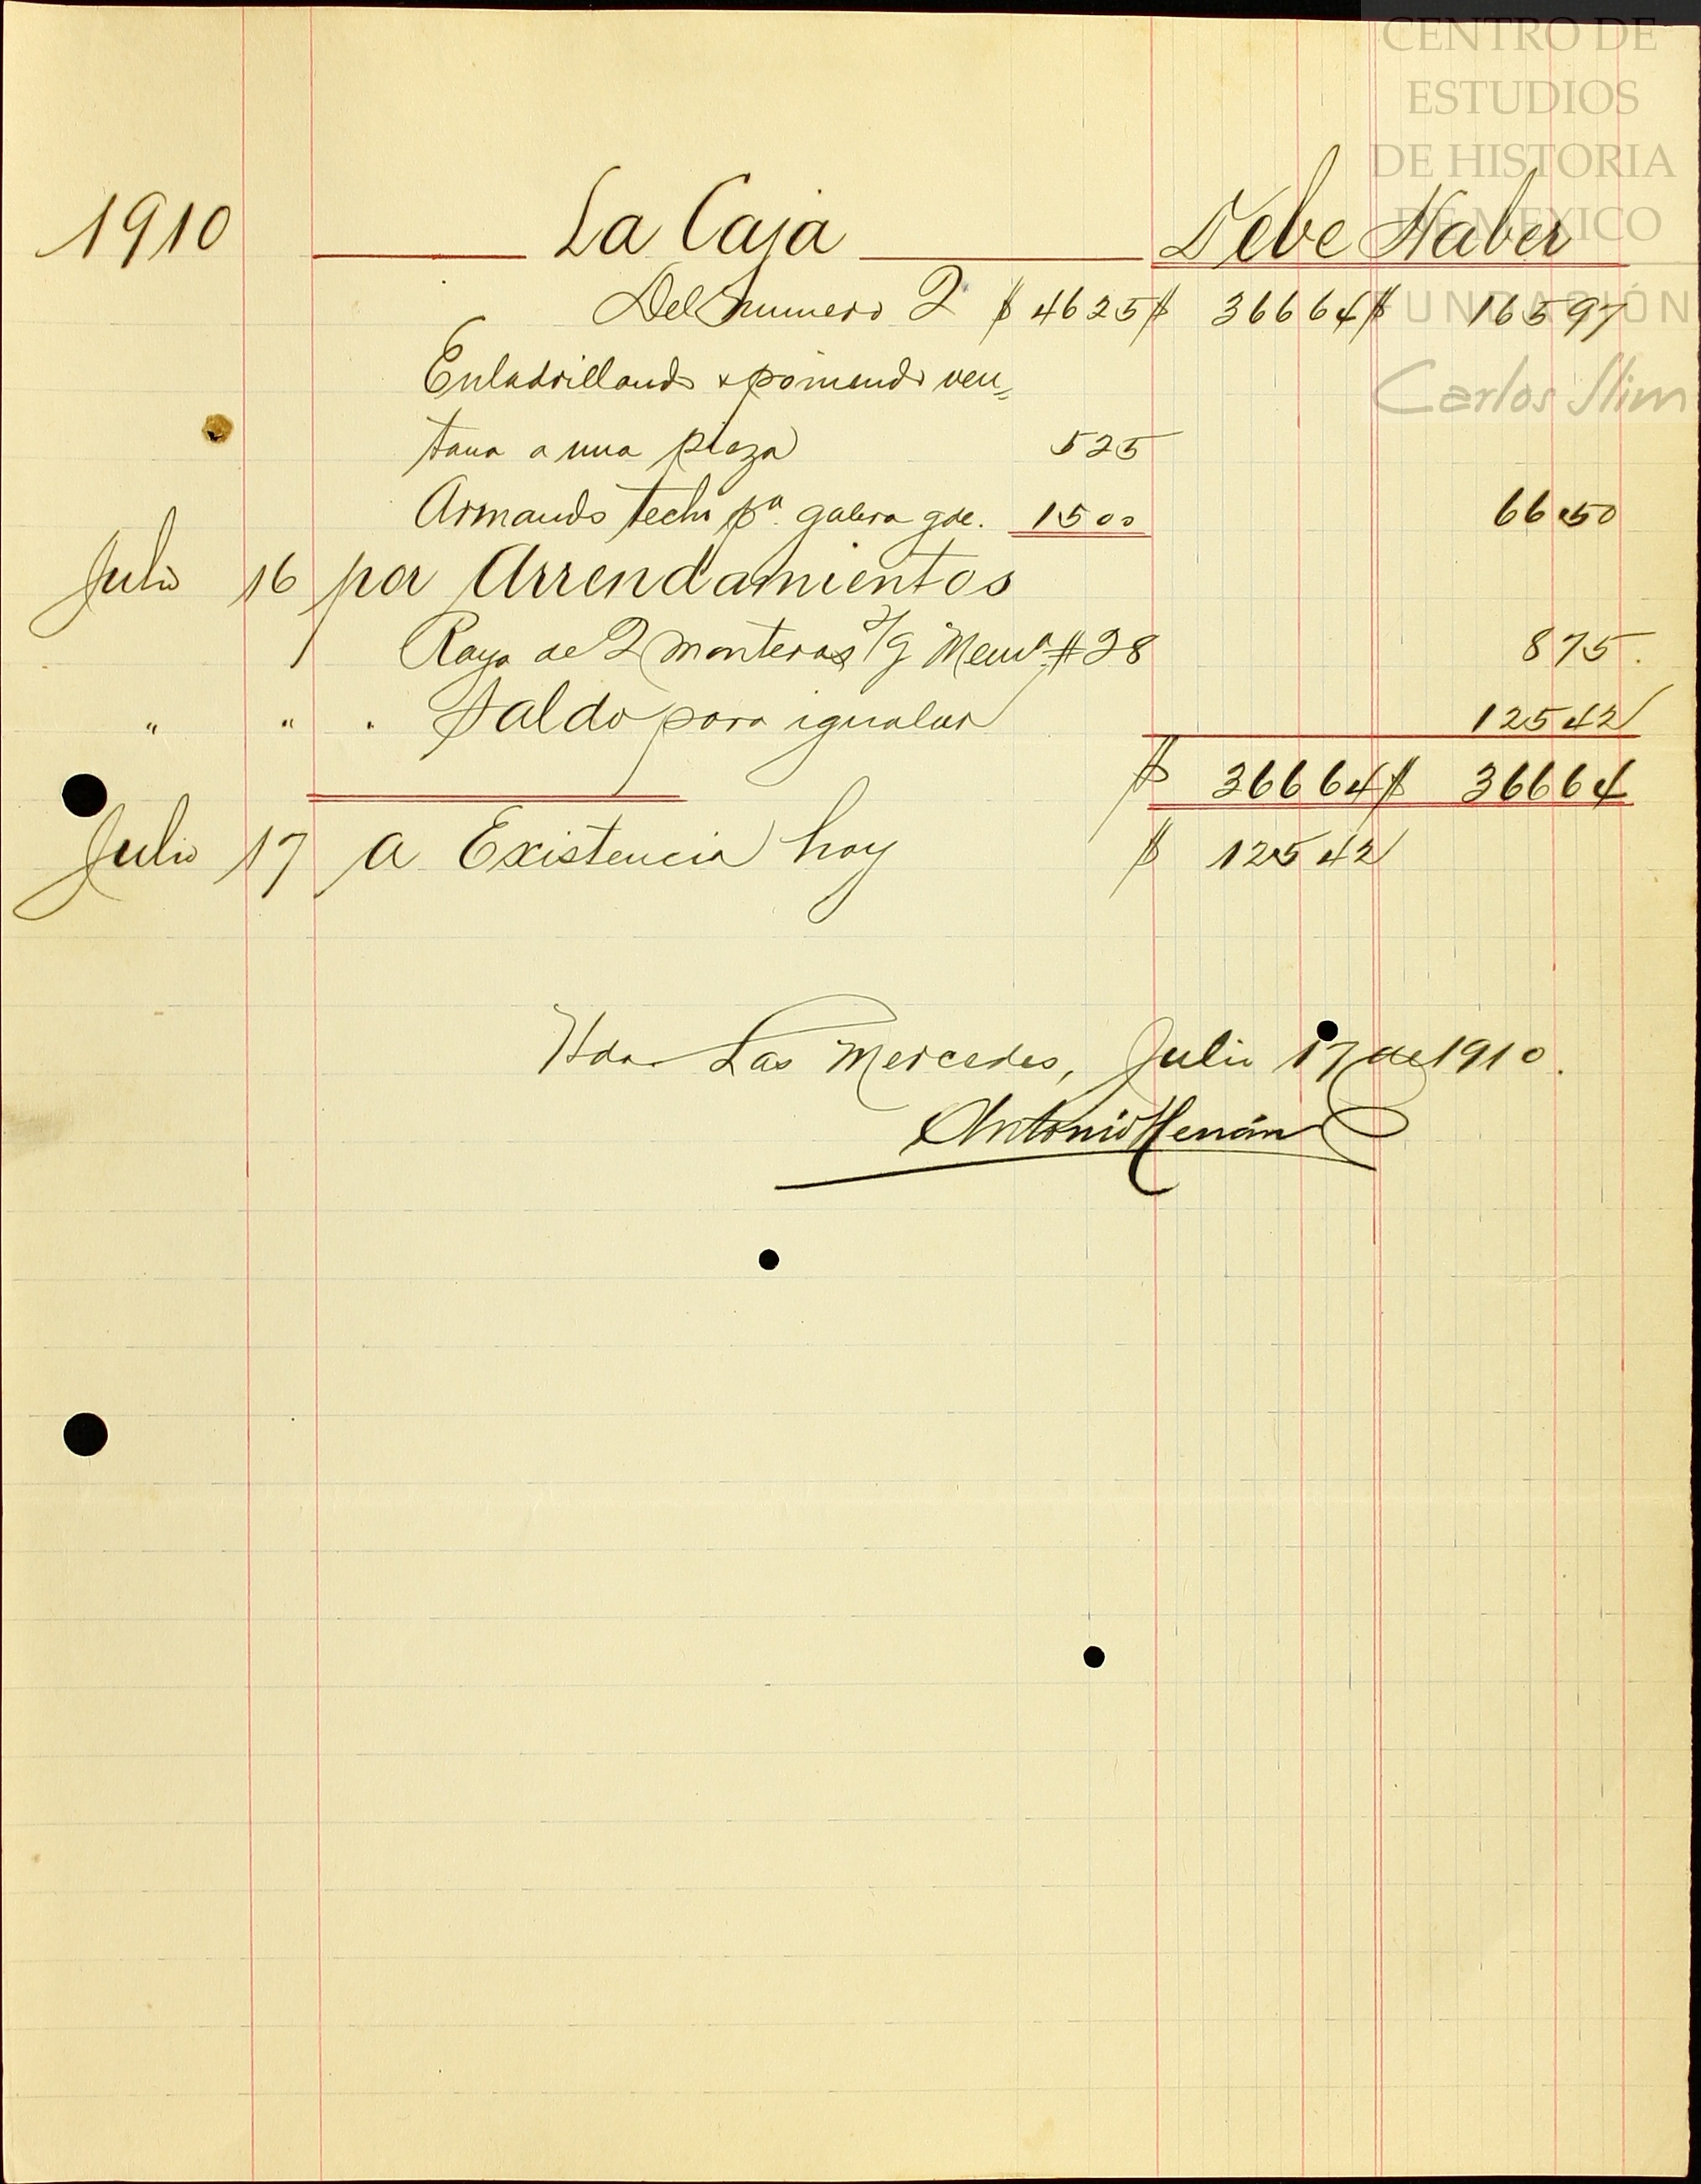 CENTRO DE
ESTUDIOS
DE HISTORIA
DE MEXICO
FUNDACIÓN
Carlos Slim
1910 La Caja Debe Haber
Del numero 2 $ 4625 $ 36664 $ 16597
Enladrillando y poniendo ven„
tana a una pieza 525
Armando techo pª. galera gde. 1500 6650
Julio 16 por Arrendamientos
Raya de 2 monteros s/g Memª #28 875.
" " " Saldo para igualar 12542
$ 36664 $ 36664
Julio 17 a Existencia hoy $ 12542
Hda. Las Mercedes, Julio 17 de 1910.
Antonio